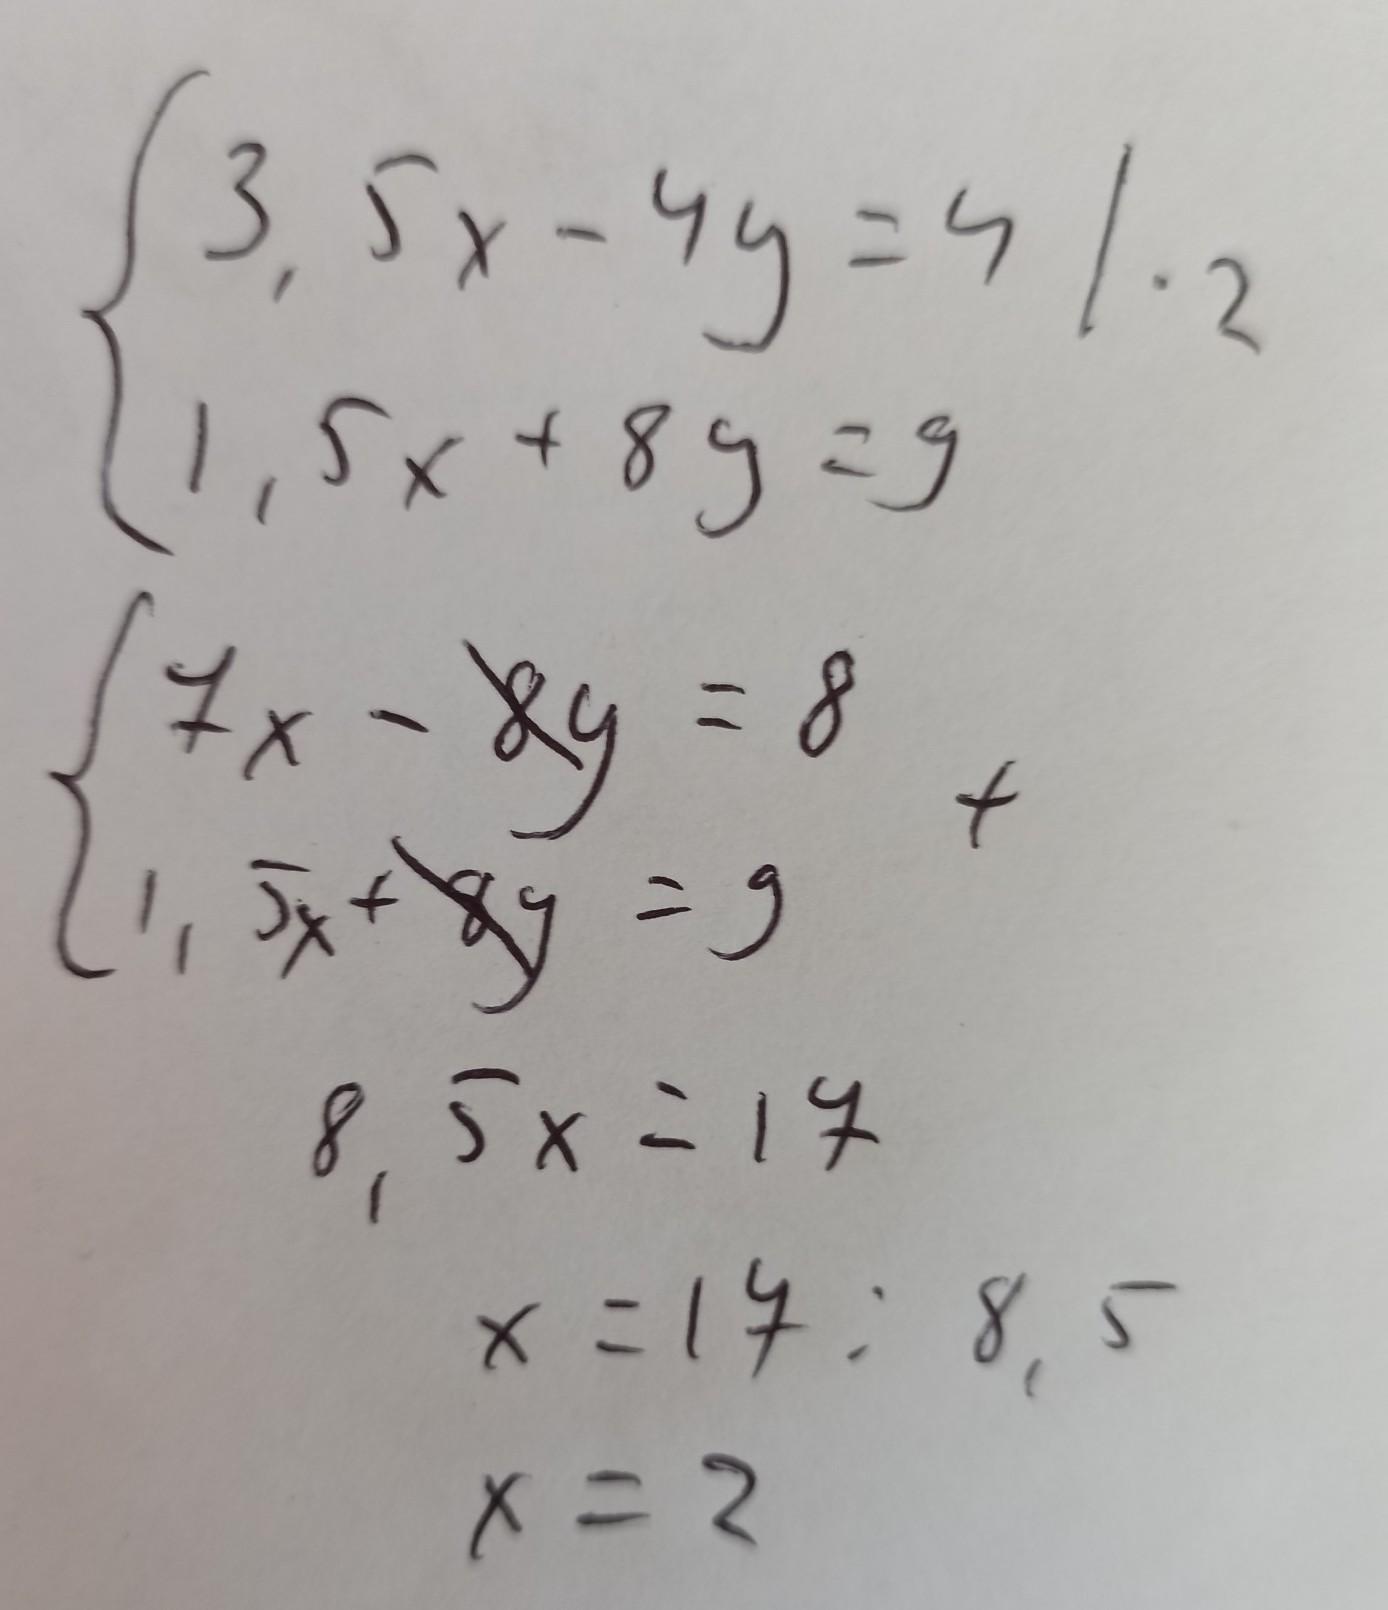 3,5x - 4y = 4 / · 2
1,5x + 8y = 9
7x - 8y = 8
+
1,5x + 8y = 9
8,5x = 17
x = 17 : 8,5
x = 2